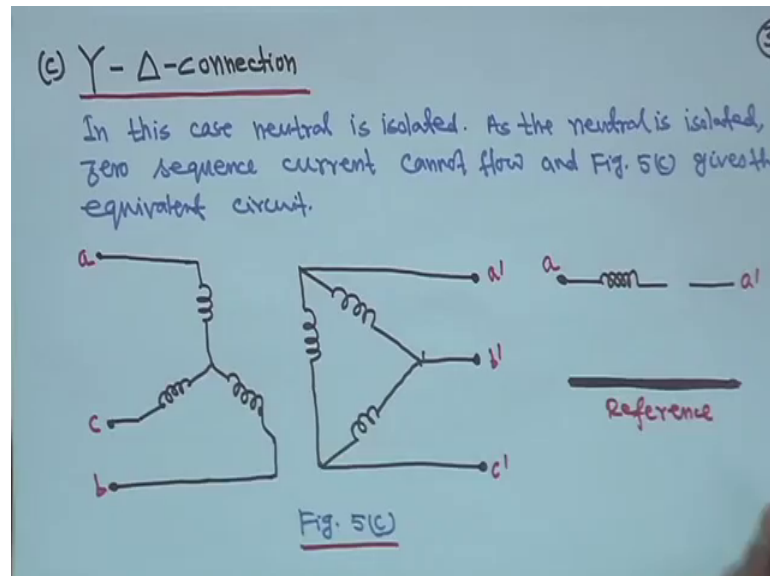 (c) Y - Δ - connection
In this case neutral is isolated. As the neutral is isolated,
zero sequence current cannot flow and Fig. 5(c) gives
equivalent circuit.
a
c
b
a'
b'
c'
a
a'
Reference
Fig. 5(c)